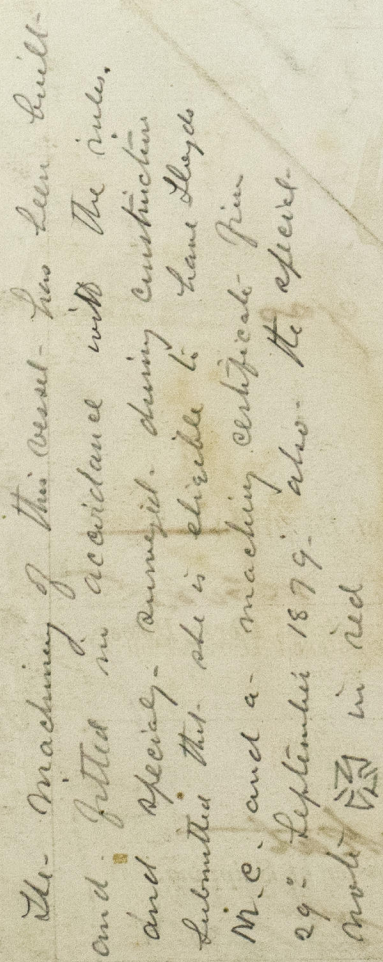 The machinery of this vessel has been built
and fitted in accordance with the rules.
and specialy surveyed during construction
Submitted that she is eligible to have Lloyds
M.C. and a machiny certificate from
29th September 1879 - also the special
note in red